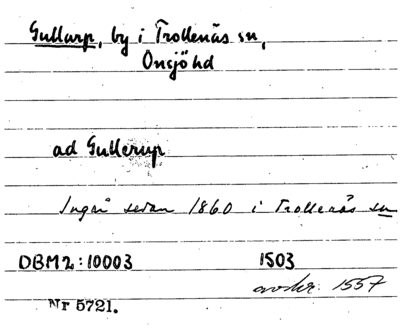 Gullarp, by i Trollenäs sn,
Onsjö hd
ad Gullerup
Ingår sedan 1860 i Trollenäs sn
DBM2:10003 1503
avskr. 1557
Nr 5721.